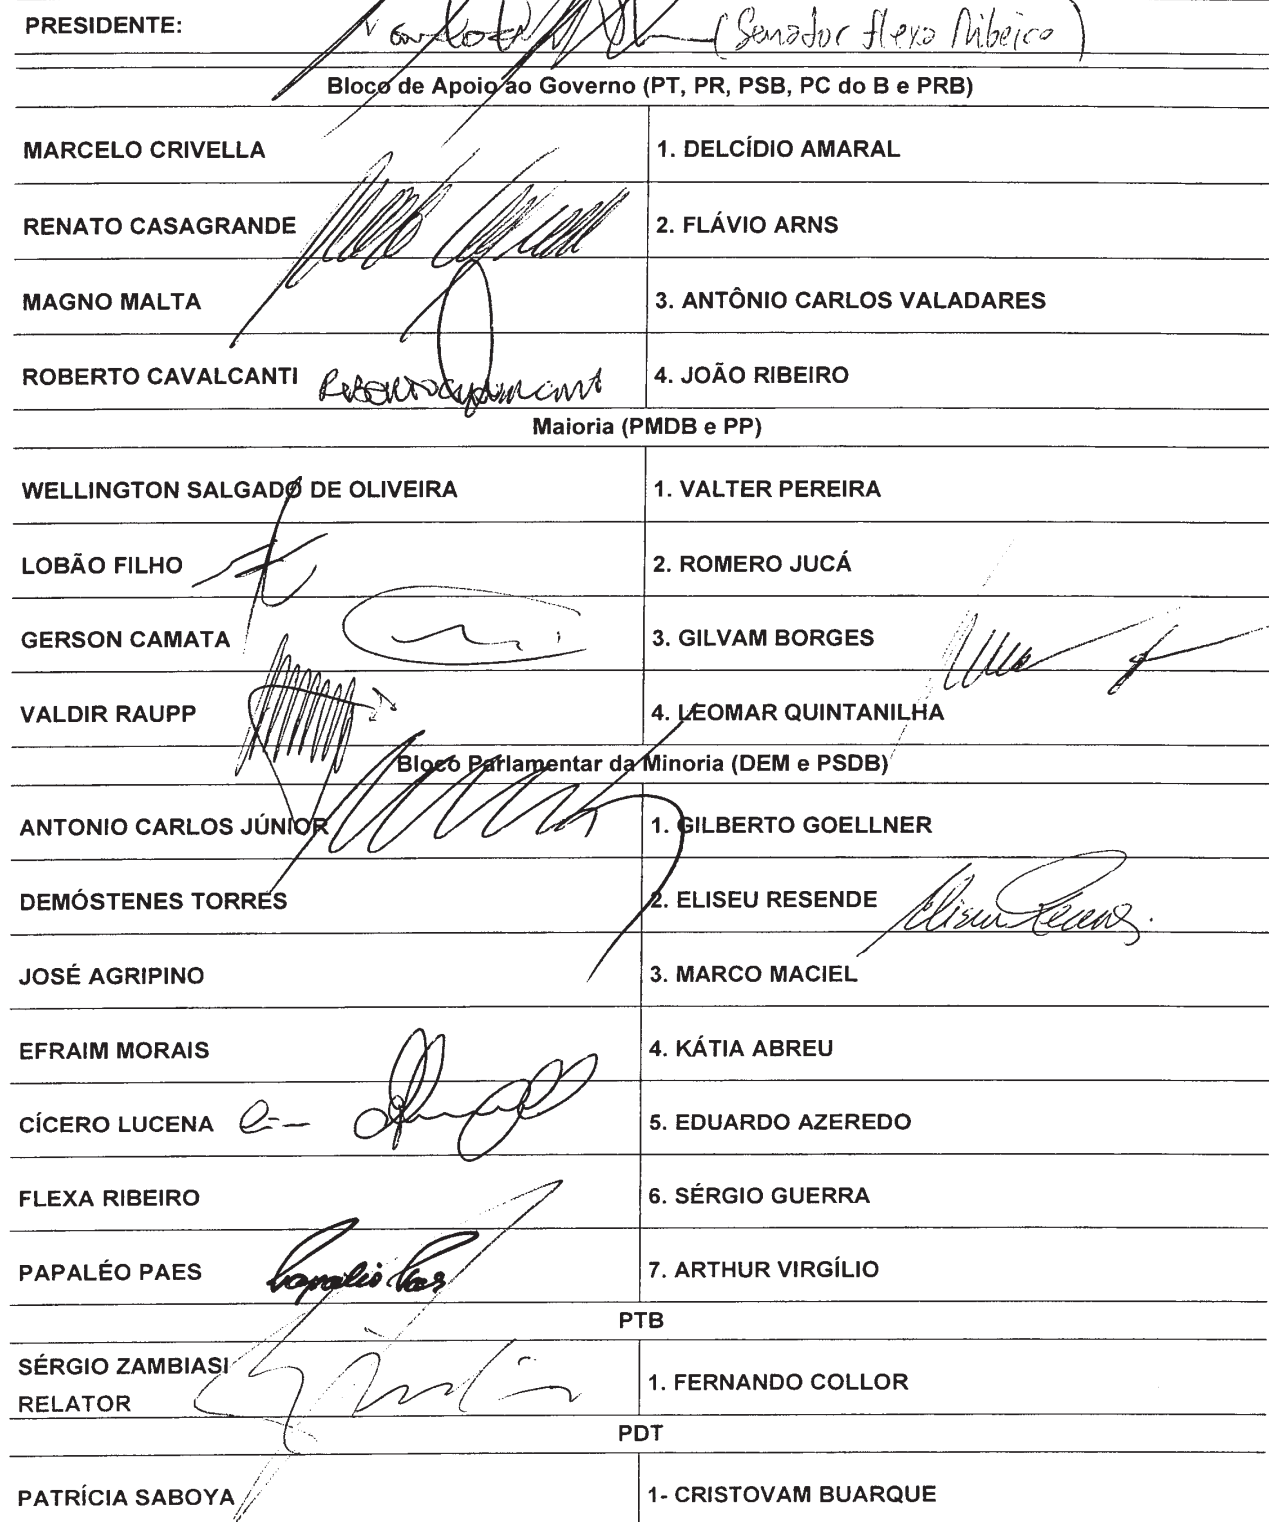 PRESIDENTE: (Senador Flexa Ribeiro)
Bloco de Apoio ao Governo (PT, PR, PSB, PC do B e PRB)
MARCELO CRIVELLA 1. DELCÍDIO AMARAL
RENATO CASAGRANDE 2. FLÁVIO ARNS
MAGNO MALTA 3. ANTÔNIO CARLOS VALADARES
ROBERTO CAVALCANTI Roberto Cavalcanti 4. JOÃO RIBEIRO
Maioria (PMDB e PP)
WELLINGTON SALGADO DE OLIVEIRA 1. VALTER PEREIRA
LOBÃO FILHO 2. ROMERO JUCÁ
GERSON CAMATA 3. GILVAM BORGES
VALDIR RAUPP 4. LEOMAR QUINTANILHA
Bloco Parlamentar da Minoria (DEM e PSDB)
ANTONIO CARLOS JÚNIOR 1. GILBERTO GOELLNER
DEMÓSTENES TORRES 2. ELISEU RESENDE Eliseu Resende
JOSÉ AGRIPINO 3. MARCO MACIEL
EFRAIM MORAIS 4. KÁTIA ABREU
CÍCERO LUCENA 5. EDUARDO AZEREDO
FLEXA RIBEIRO 6. SÉRGIO GUERRA
PAPALÉO PAES Papaléo Paes 7. ARTHUR VIRGÍLIO
PTB
SÉRGIO ZAMBIASI 1. FERNANDO COLLOR
RELATOR
PDT
PATRÍCIA SABOYA 1- CRISTOVAM BUARQUE